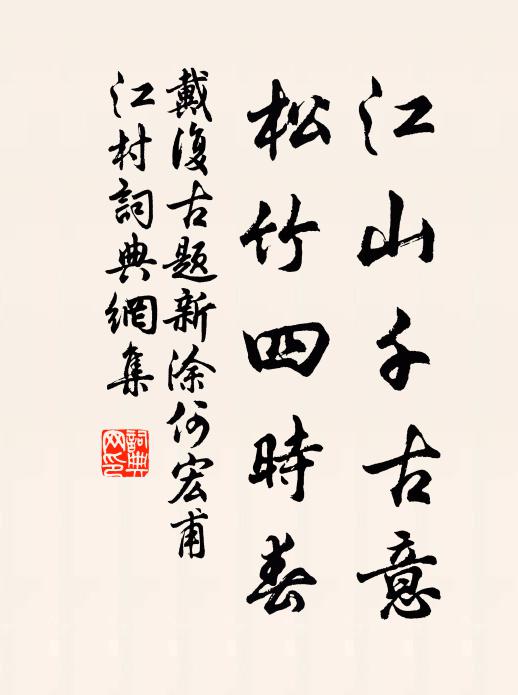 江山千古意
松竹四時春
戴復古題新涂何宏甫
江村詞典網集
詞典網印